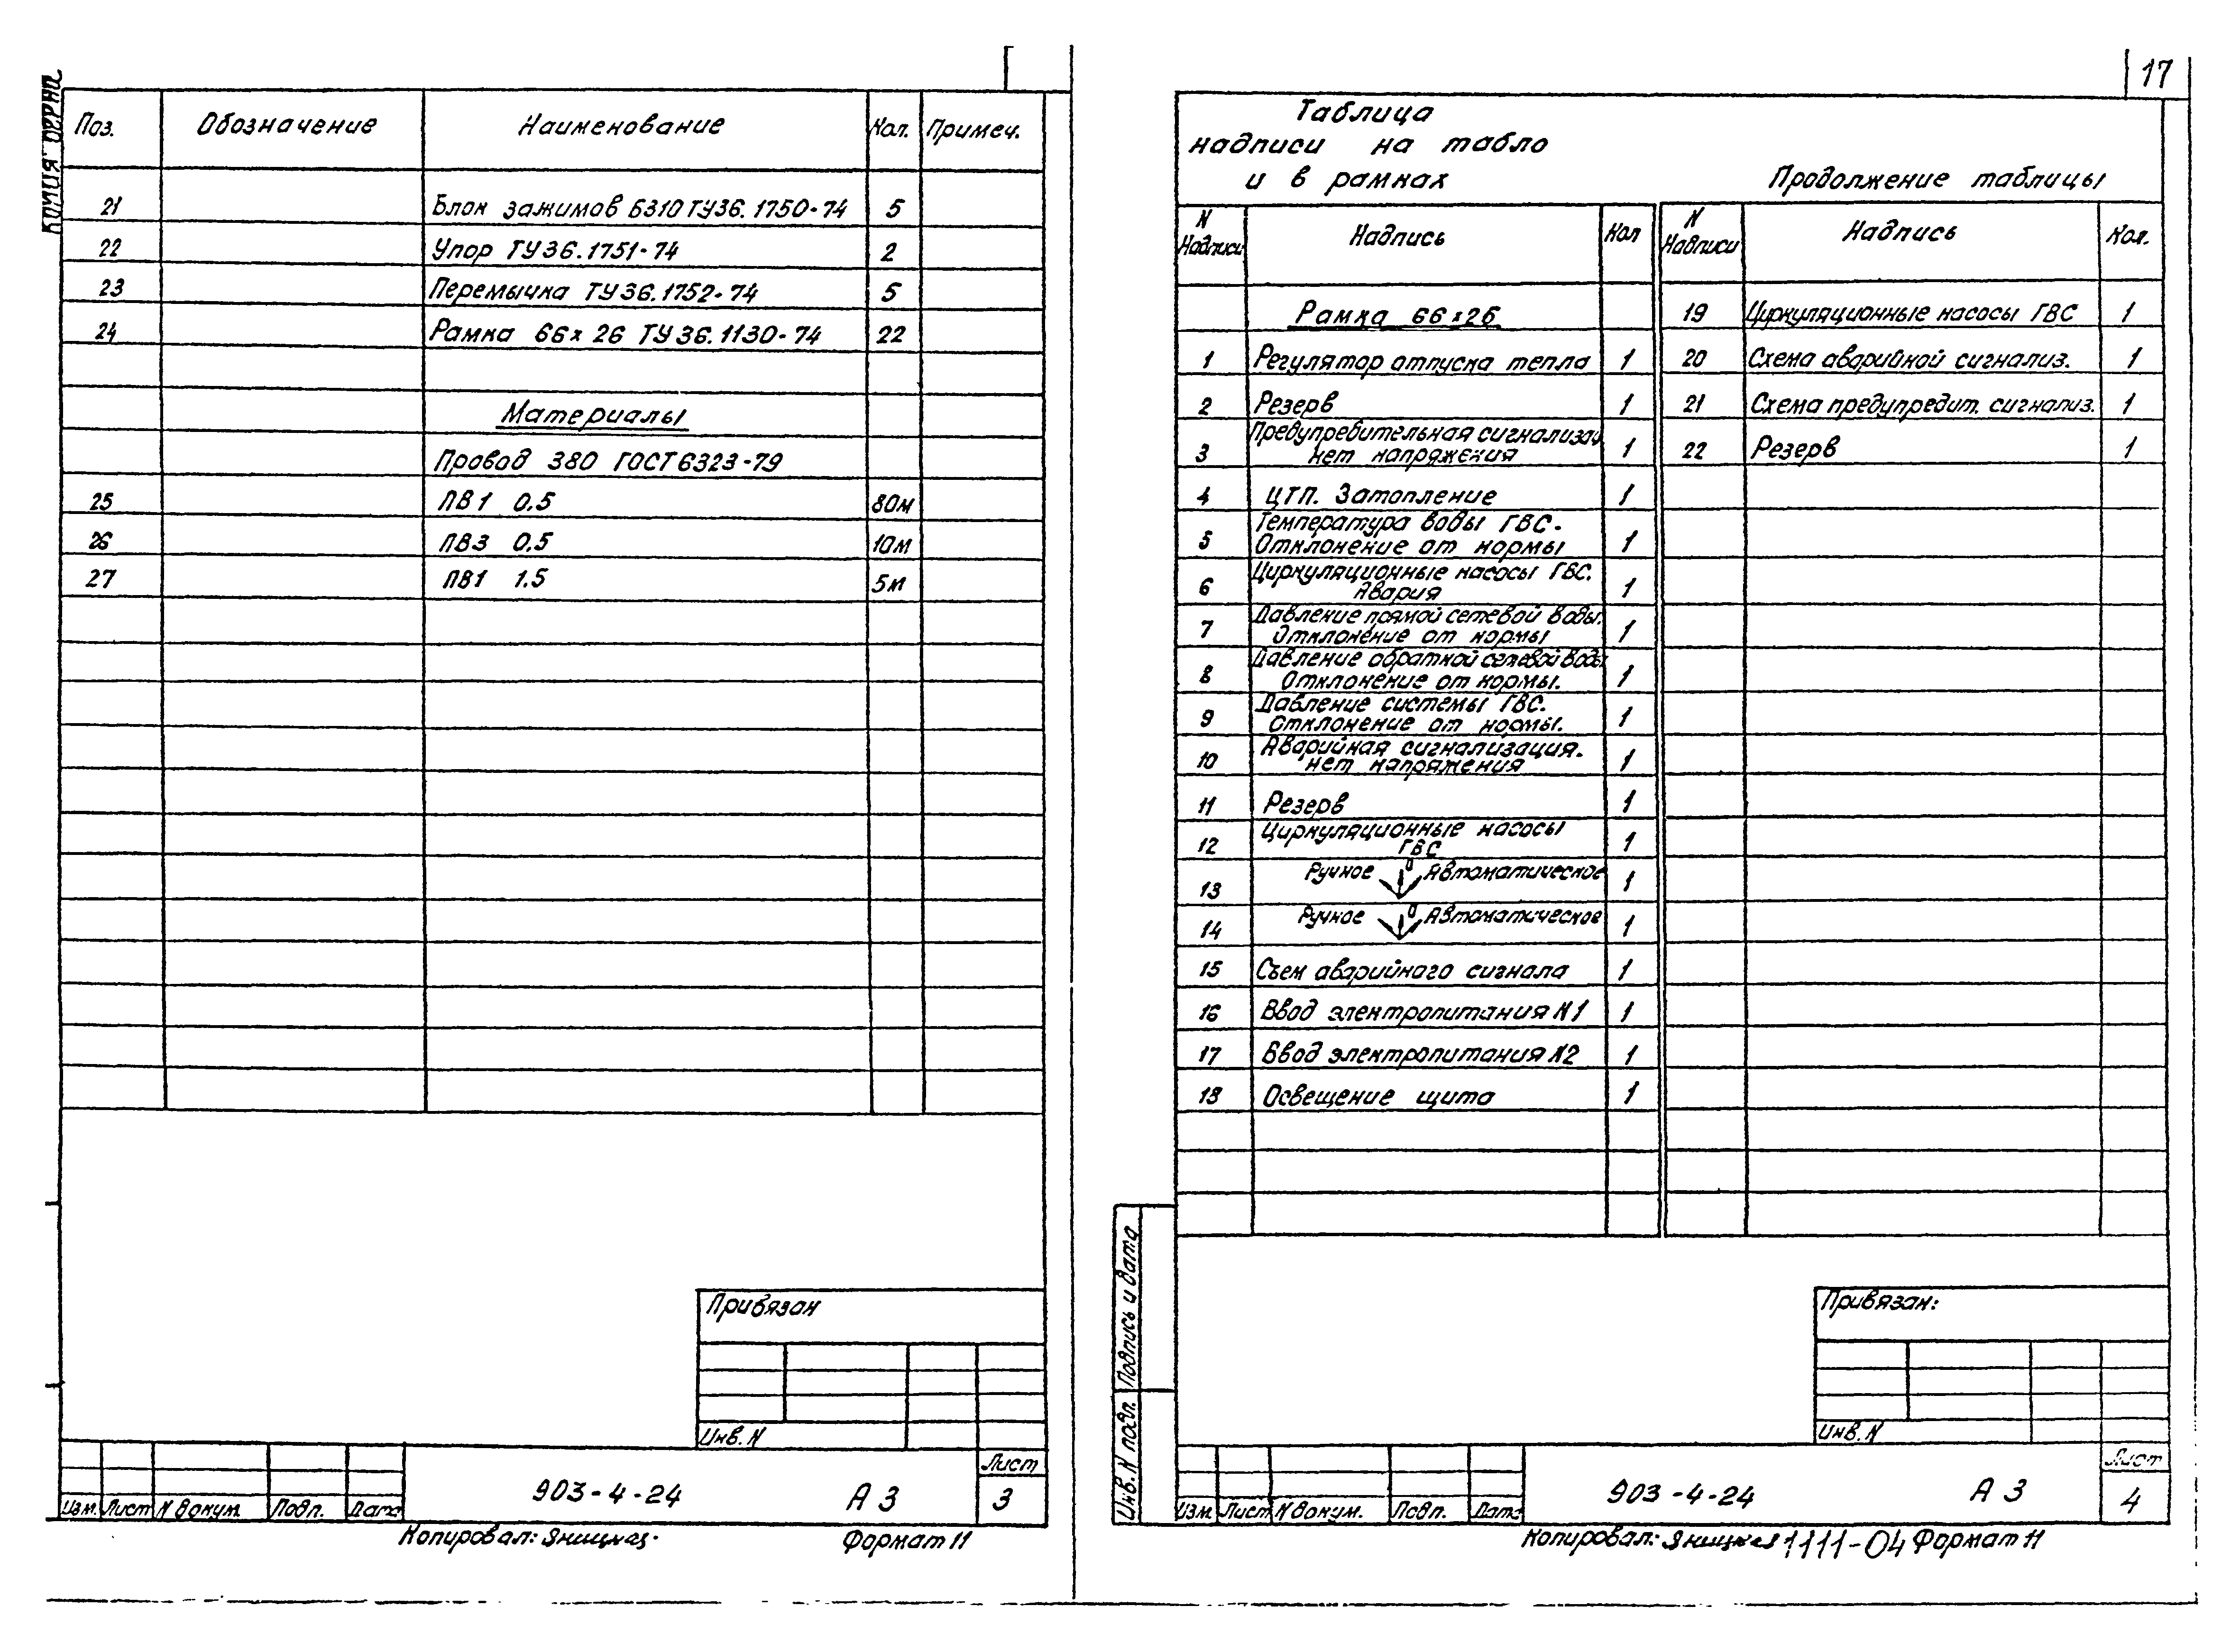 Копия верна
Поз. Обозначение Наименование Кол. Примеч.
21 Блок зажимов Б310 ТУ36.1750-74 5
22 Упор ТУ36.1751-74 2
23 Перемычка ТУ36.1752-74 5
24 Рамка 66х26 ТУ36.1130-74 22
Материалы
Провод 380 ГОСТ 6323-79
25 ПВ1 0.5 80м
26 ПВ3 0.5 10м
27 ПВ1 1.5 5м
Привязан
Инв. N
Изм. Лист N докум. Подп. Дата
903-4-24 А 3
Лист
3
Копировал: Яницкая
Формат 11
17
Таблица
надписи на табло
и в рамках
Продолжение таблицы
N Надписи Надпись Кол
Рамка 66х26
1 Регулятор отпуска тепла 1
2 Резерв 1
3 Предупредительная сигнализац.
нет напряжения 1
4 ЦТП. Затопление 1
5 Температура воды ГВС.
Отклонение от нормы 1
6 Циркуляционные насосы ГВС.
Авария 1
7 Давление прямой сетевой воды.
Отклонение от нормы 1
8 Давление обратной сетевой воды
Отклонение от нормы. 1
9 Давление системы ГВС.
Отклонение от нормы. 1
10 Аварийная сигнализация.
нет напряжения 1
11 Резерв 1
12 Циркуляционные насосы
ГВС 1
13 Ручное 0 Автоматическое 1
14 Ручное 0 Автоматическое 1
15 Съем аварийного сигнала 1
16 Ввод электропитания N1 1
17 Ввод электропитания N2 1
18 Освещение щита 1
N Надписи Надпись Кол.
19 Циркуляционные насосы ГВС 1
20 Схема аварийной сигнализ. 1
21 Схема предупредит. сигнализ. 1
22 Резерв 1
Подпись и дата
Инв. N подл.
Привязан:
Инв. N
Изм Лист N докум. Подп. Дата
903-4-24 А 3
Лист
4
Копировал: Яницкая 1111-04 Формат 11